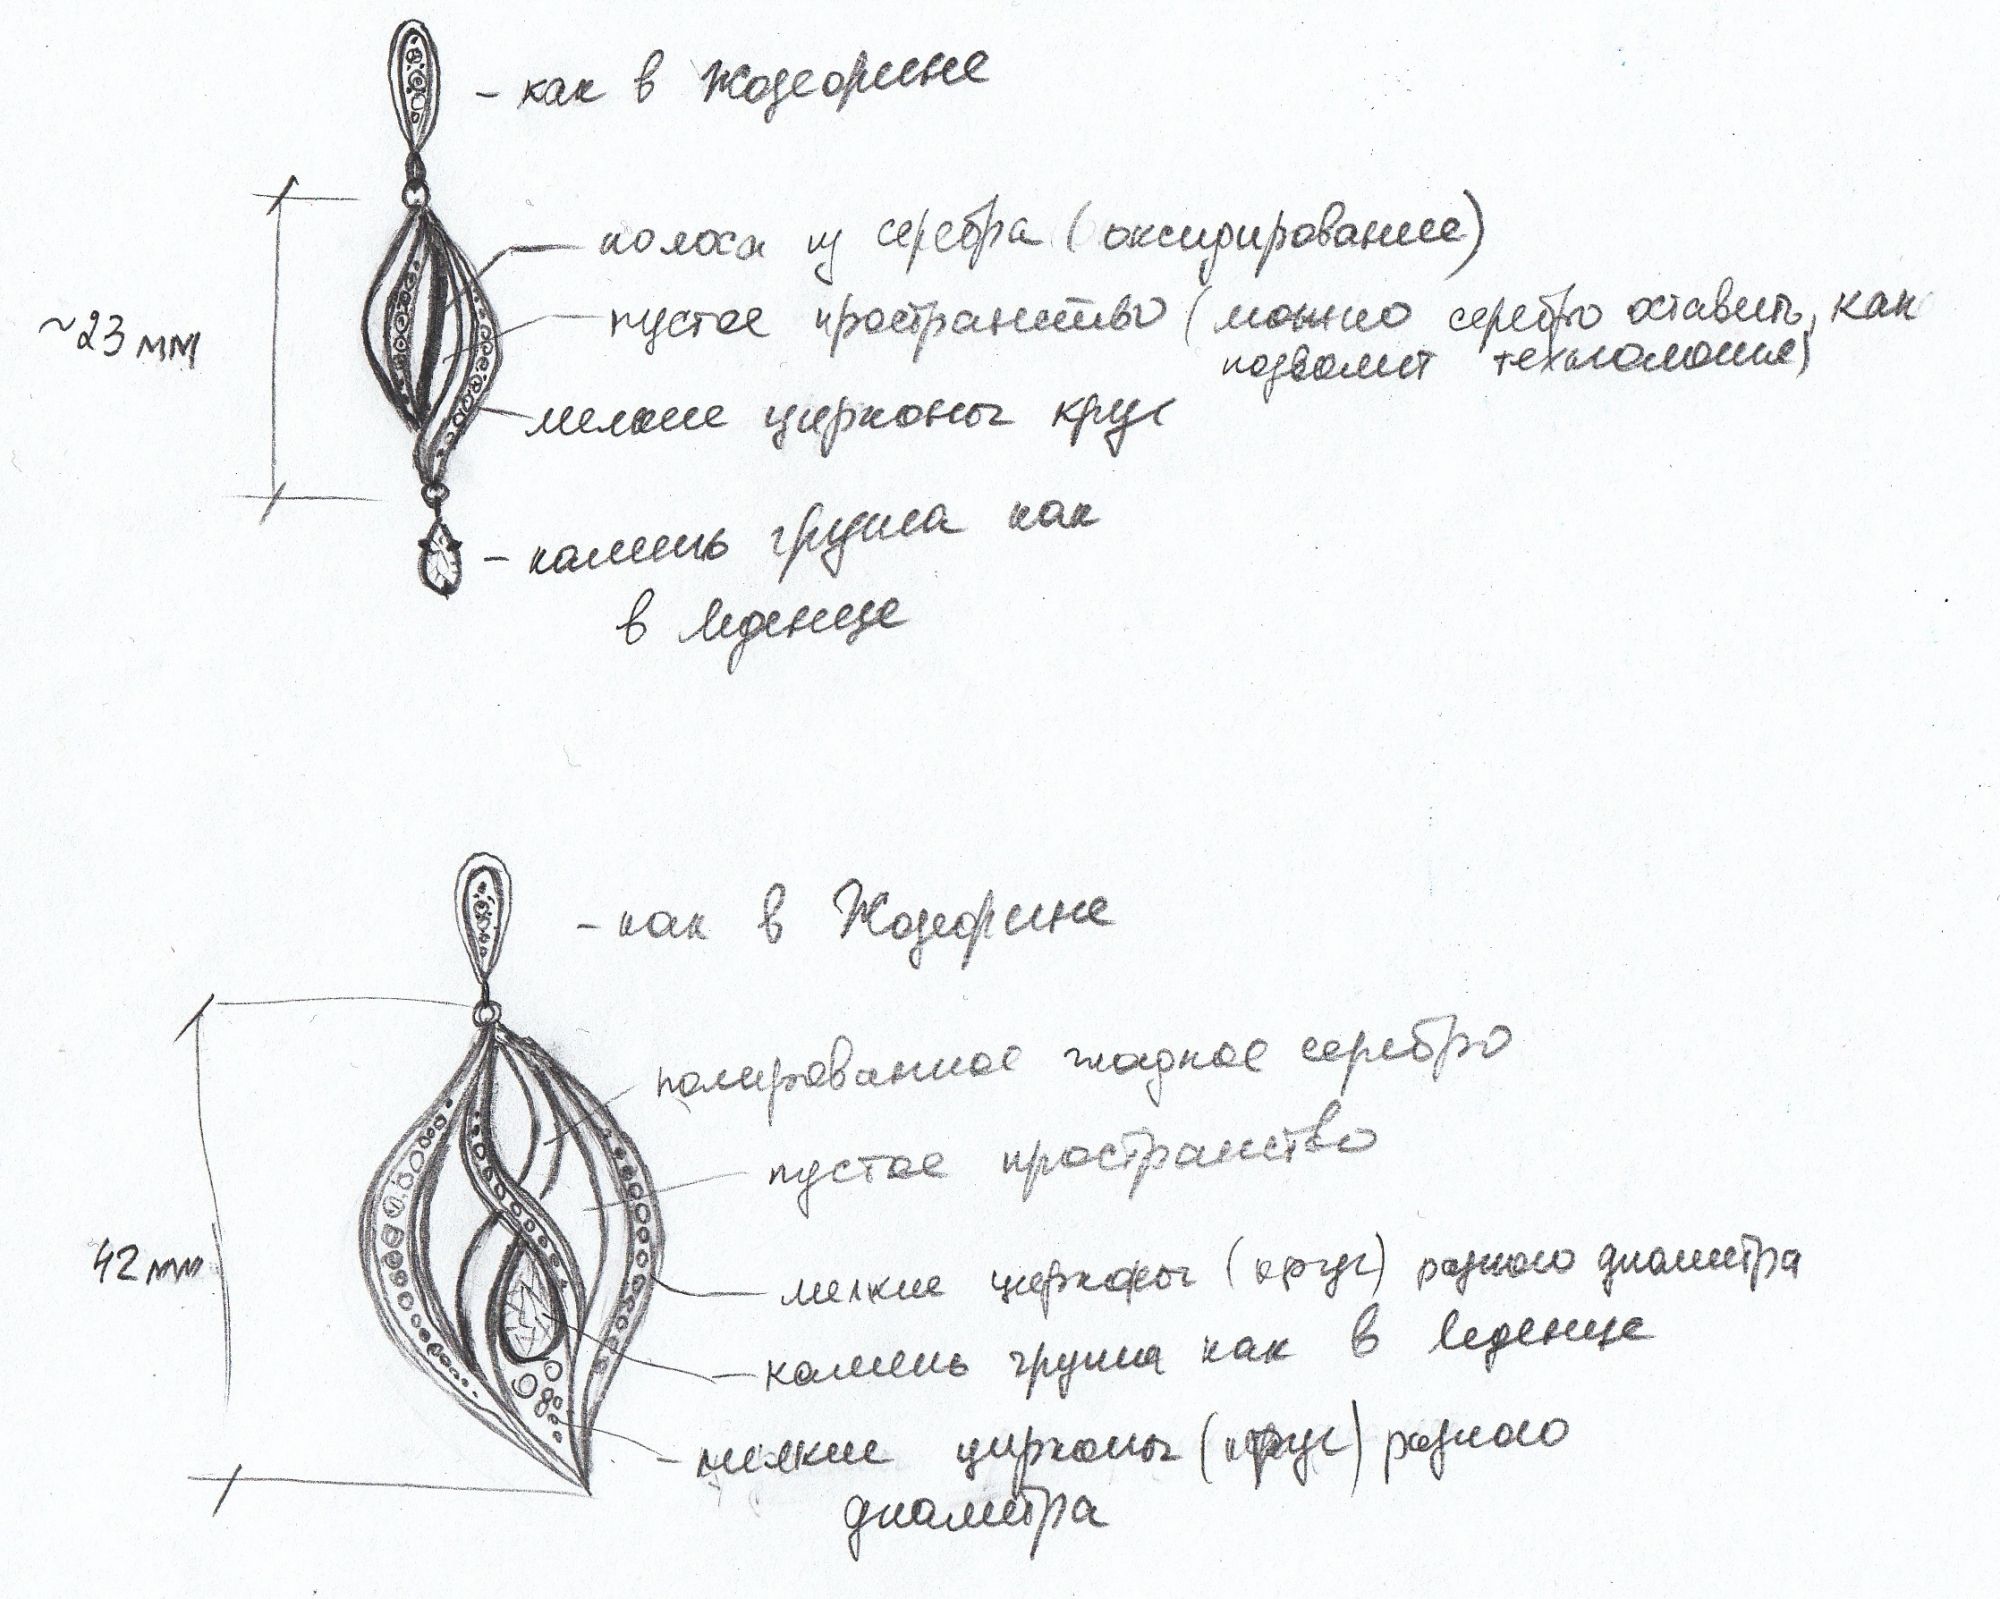 - как в Жозеорине
полоса из серебра (оксидирование)
~23 мм
пустое пространство (можно серебро оставить, как
позволит технология)
мелкие цирконы круг
- камень груша как
в леденце
- как в Жозеорине
полированное гладкое серебро
пустое пространство
42 мм
мелкие цирконы (круг) разного диаметра
- камень груша как в леденце
- мелкие цирконы (круг) разного
диаметра